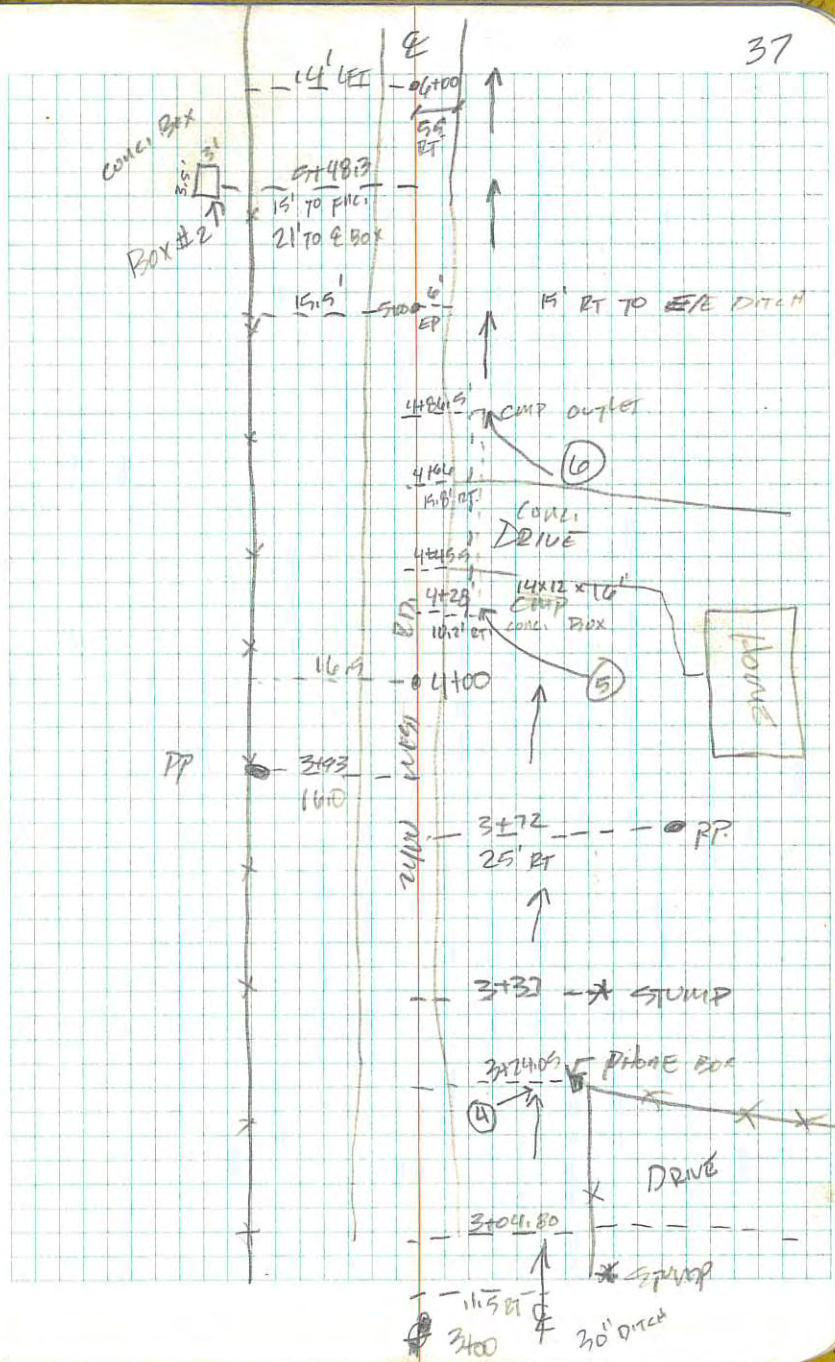 37
℄
14' LEFT
6+00
5.5
RT
CONC. BOX
3'
3.5'
5+48.3
15' TO FNC.
21' TO ℄ BOX
BOX #2
15.5'
5+00
6'
EP
15' RT TO E/E DITCH
4+84.5'
CMP OUTLET
6
4+66
15.8' RT.
CONC.
DRIVE
4+45.5
4+28'
14x12 x 16"
CMP
CONC. BOX
10.2' RT.
HOME
RD.
16.5
4+00
5
PP
3+93
16.0
WEST
3+72
PP.
25' RT
3+37
STUMP
3+24.05
PHONE BOX
4
DRIVE
3+04.80
STUMP
11.5 RT
3+00
℄
30" DITCH